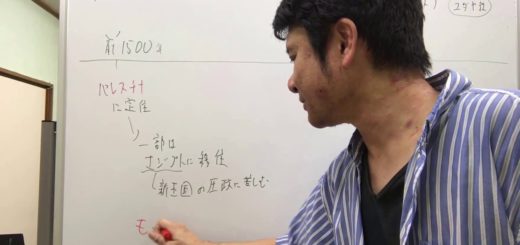 ユダヤ教
前1500年
パレスチナ
に定住
一部は
エジプトに移住
新王国の圧政に苦しむ
モ